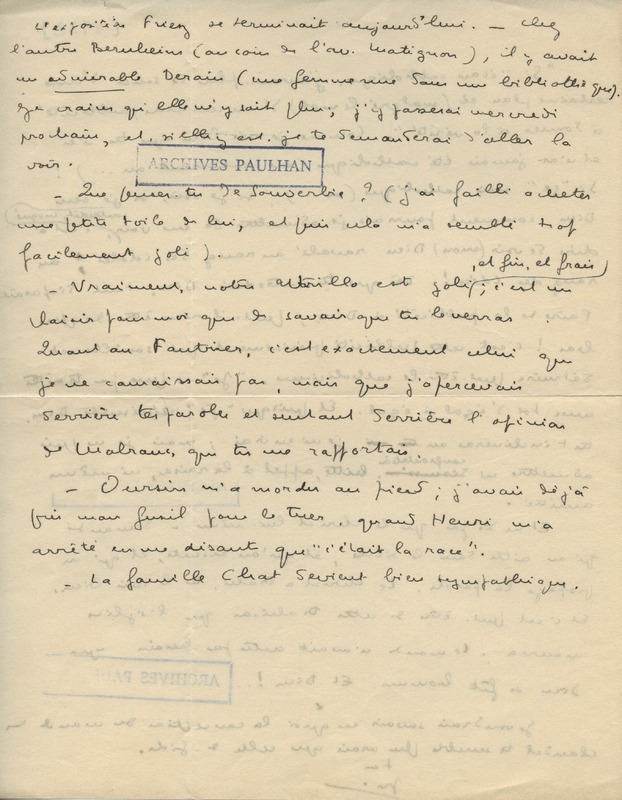 L'exposition Friesz se terminait aujourd'hui. — Chez
l'autre Bernheim (au coin de l'av. Matignon), il y avait
un admirable Derain (une femme nue dans une bibliothèque).
Je crains qu'elle n'y soit plus; j'y passerai mercredi
prochain, et, si elle y est, je te demanderai d'aller la
voir.
ARCHIVES PAULHAN
— Que penses-tu de Souverbie? (j'ai failli acheter
une petite toile de lui, et puis cela m'a semblé trop
facilement joli).
— Vraiment, notre Utrillo est joli, et fin, et frais; c'est un
plaisir pour moi que de savoir que tu le verras.
Quant au Fautrier, c'est exactement celui que
je ne connaissais pas, mais que j'apercevais
derrière tes paroles et surtout derrière l'opinion
de Malraux, que tu me rapportais.
— Oursin m'a mordu au pied; j'avais déjà
pris mon fusil pour le tuer, quand Henri m'a
arrêté en me disant que "c'était la race".
— La famille Chat devient bien sympathique.
ARCHIVES PAU